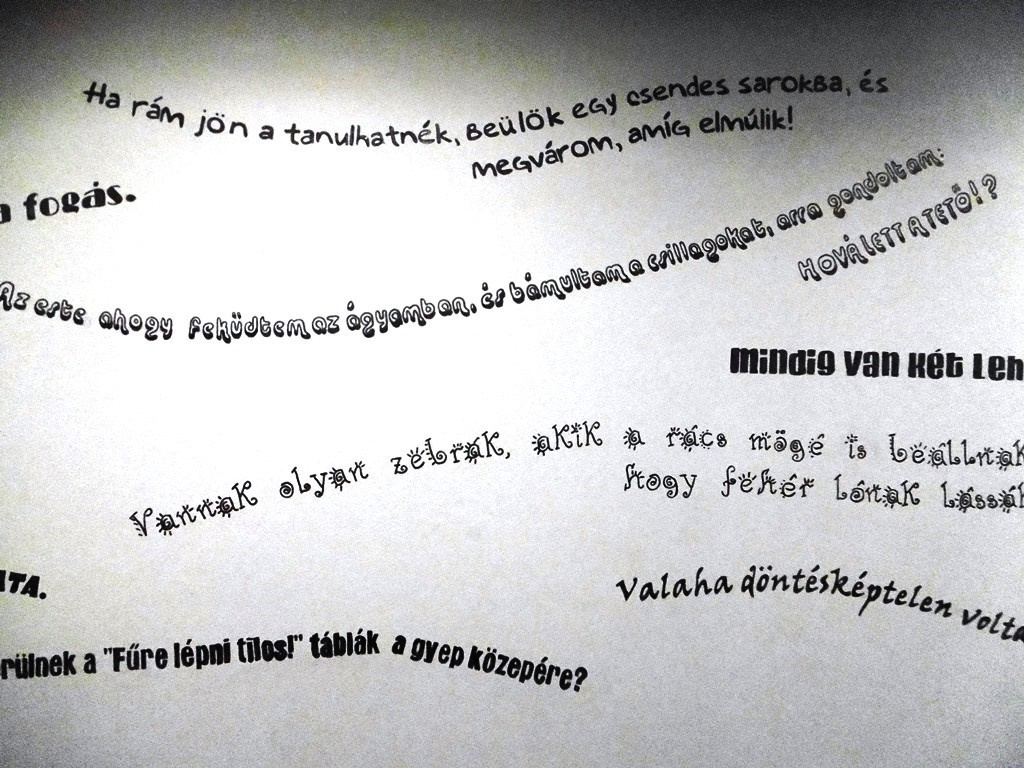 Ha rám jön a tanulhatnék, Beülök egy csendes sarokba, és
megvárom, amíg elmúlik!
a fogás.
Az este ahogy feküdtem az ágyamban, és bámultam a csillagokat, arra gondoltam:
HOVÁ LETT A TETŐ!?
Mindig van két leh
Vannak olyan zebrák, akik a rács mögé is beállnak
hogy fehér lónak lássák
ATA.
Valaha döntésképtelen volta
rülnek a "Fűre lépni tilos!" táblák a gyep közepére?